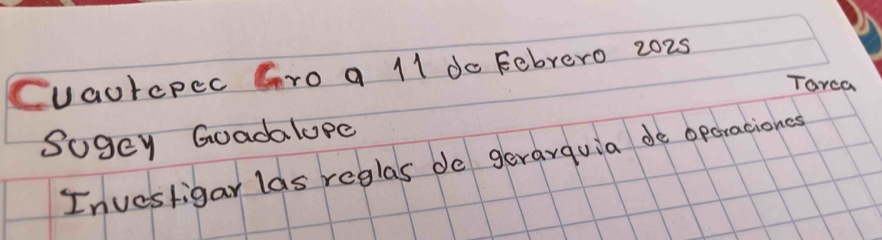 Cuautepec Gro a 11 de Febrero 2025
Tarea
Sugey Guadalupe
Investigar las reglas de gerarquia de operaciones